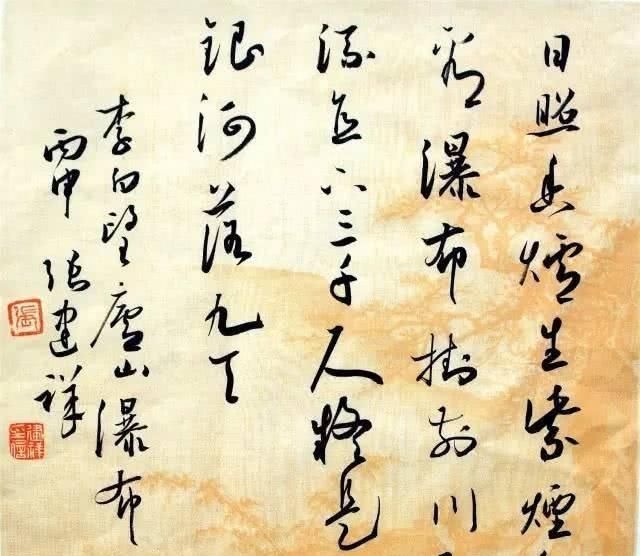 日照香爐生紫煙
看瀑布掛前川
流直下三千尺疑是
銀河落九天
李白望廬山瀑布
丙申 張建祥
張